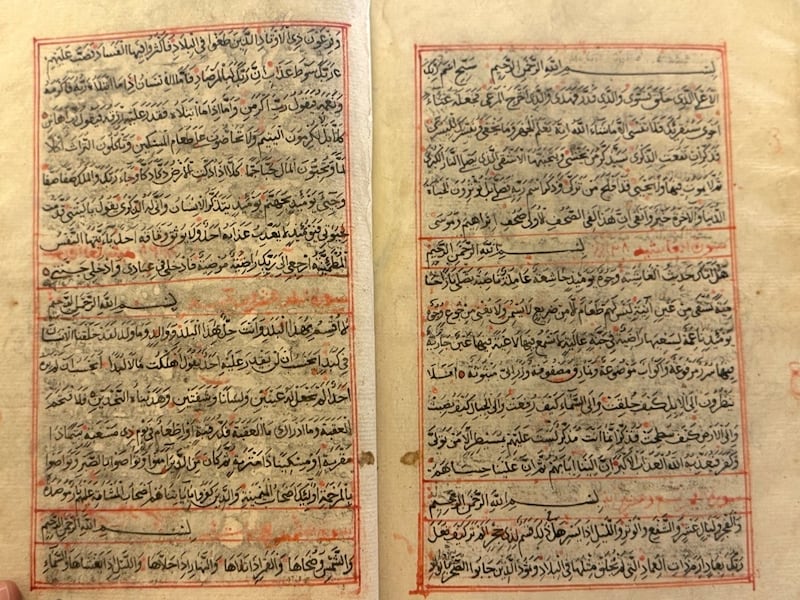 بسم الله الرحمن الرحيم سبح اسم ربك
الاعلى الذي خلق فسوى والذي قدر فهدى والذي اخرج المرعى فجعله غثاء
احوى سنقرئك فلا تنسى الا ما شاء الله انه يعلم الجهر وما يخفى ونيسرك لليسرى
فذكر ان نفعت الذكرى سيذكر من يخشى ويتجنبها الاشقى الذي يصلى النار الكبرى
ثم لا يموت فيها ولا يحيى قد افلح من تزكى وذكر اسم ربه فصلى بل تؤثرون الحياة
الدنيا والاخرة خير وابقى ان هذا لفي الصحف الاولى صحف ابراهيم وموسى
سورة الغاشية بسم الله الرحمن الرحيم
هل اتاك حديث الغاشية وجوه يومئذ خاشعة عاملة ناصبة تصلى نارا حا
مية تسقى من عين انية ليس لهم طعام الا من ضريع لا يسمن ولا يغني من جوع وجوه
يومئذ ناعمة لسعيها راضية في جنة عالية لا تسمع فيها لاغية فيها عين جارية
فيها سرر مرفوعة واكواب موضوعة ونمارق مصفوفة وزرابي مبثوثة افلا
ينظرون الى الابل كيف خلقت والى السماء كيف رفعت والى الجبال كيف نصبت
والى الارض كيف سطحت فذكر انما انت مذكر لست عليهم بمصيطر الا من تولى
وكفر فيعذبه الله العذاب الاكبر ان الينا ايابهم ثم ان علينا حسابهم
بسم الله الرحمن الرحيم
والفجر وليال عشر والشفع والوتر والليل اذا يسر هل في ذلك قسم لذي حجر الم تر كيف فعل
ربك بعاد ارم ذات العماد التي لم يخلق مثلها في البلاد وثمود الذين جابوا الصخر بالواد
وفرعون ذي الاوتاد الذين طغوا في البلاد فاكثروا فيها الفساد فصب عليهم
ربك سوط عذاب ان ربك لبالمرصاد فاما الانسان اذا ما ابتلاه ربه فاكرمه
ونعمه فيقول ربي اكرمن واما اذا ما ابتلاه فقدر عليه رزقه فيقول ربي اهانن
كلا بل لا تكرمون اليتيم ولا تحاضون على طعام المسكين وتاكلون التراث اكلا
لما وتحبون المال حبا جما كلا اذا دكت الارض دكا دكا وجاء ربك والملك صفا صفا
وجيء يومئذ بجهنم يومئذ يتذكر الانسان وانى له الذكرى يقول يا ليتني قدمت
لحياتي فيومئذ لا يعذب عذابه احد ولا يوثق وثاقه احد يا ايتها النفس
المطمئنة ارجعي الى ربك راضية مرضية فادخلي في عبادي وادخلي جنتي
بسم الله الرحمن الرحيم
لا اقسم بهذا البلد وانت حل بهذا البلد ووالد وما ولد لقد خلقنا الانسان
في كبد ايحسب ان لن يقدر عليه احد يقول اهلكت مالا لبدا ايحسب ان لم يره
احد الم نجعل له عينين ولسانا وشفتين وهديناه النجدين فلا اقتحم
العقبة وما ادراك ما العقبة فك رقبة او اطعام في يوم ذي مسغبة يتيما ذا
مقربة او مسكينا ذا متربة ثم كان من الذين امنوا وتواصوا بالصبر وتواصوا
بالمرحمة اولئك اصحاب الميمنة والذين كفروا باياتنا هم اصحاب المشئمة عليهم نار موصدة
بسم الله الرحمن الرحيم
والشمس وضحاها والقمر اذا تلاها والنهار اذا جلاها والليل اذا يغشاها والسماء